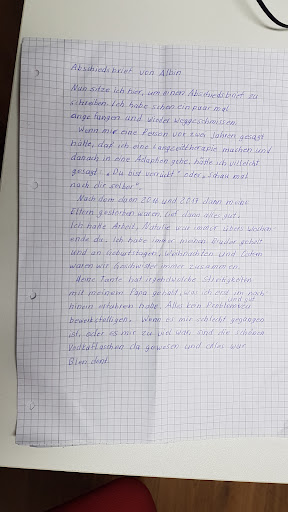 Abschiedsbrief von Albin
Nun sitze ich hier, um einen Abschiedsbrief zu
schreiben. Ich habe schon ein paar mal
angefangen und wieder weggeschmissen.
Wenn mir eine Person vor zwei Jahren gesagt
hätte, das ich eine Langzeittherapie machen und
danach in eine Adaption gehe, hätte ich vielleicht
gesagt: „Du bist verrückt" oder „Schau mal
nach dir selber".
Nach dem dann 2016 und 2017 dann meine
Eltern gestorben waren, lief dann alles gut.
Ich hatte Arbeit, Natalie war immer übers Wochen-
ende da. Ich habe immer meinen Bruder gehabt
und an Geburtstagen, Weihnachten und Ostern
waren wir Geschwister immer zusammen.
Meine Tante hat irgendwelche Streitigkeiten
mit meinem Papa gehabt, was ich erst im nach
hinein erfahren habe. Alles kein Problem und gut
bewerkstelligen. Wenn es mir schlecht gegangen
ist, oder es mir zu viel war, sind die schönen
Vodkaflaschen da gewesen und alles war
Blendend.